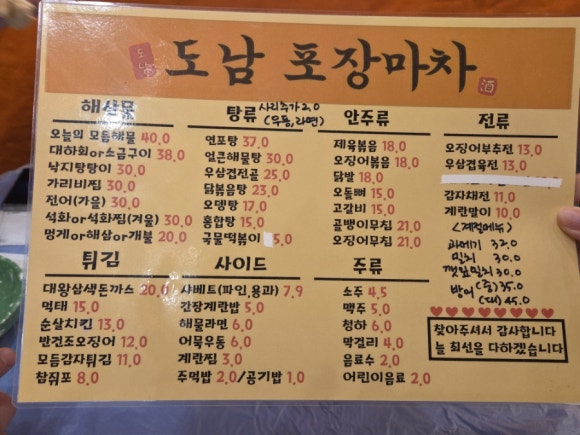 도남 포장마차
酒
해산물
오늘의 모듬해물 40,0
대하회or소금구이 38,0
낙지탕탕이 30,0
가리비찜 30,0
전어(가을) 30,0
석화or석화찜(겨울) 30,0
멍게or해삼or개불 20,0
탕류 사리추가 2,0
(우동,라면)
연포탕 37,0
얼큰해물탕 30,0
우삼겹전골 25,0
닭볶음탕 23,0
오뎅탕 17,0
홍합탕 15,0
국물떡볶이 5,0
안주류
제육볶음 18,0
오징어볶음 18,0
닭발 18,0
오돌뼈 15,0
고갈비 15,0
골뱅이무침 21,0
오징어무침 21,0
전류
오징어부추전 13,0
우삼겹육전 13,0
감자채전 11,0
계란말이 10,0
<계절메뉴>
과메기 32.0
밀치 30.0
깻잎밀치 30.0
방어 (중)35.0
(대)45.0
튀김
대왕삼색돈까스 20,0
먹태 15,0
순살치킨 13,0
반건조오징어 12,0
모듬감자튀김 11,0
참쥐포 8,0
사이드
샤베트(파인,용과) 7,9
간장계란밥 5,0
해물라면 6,0
어묵우동 6,0
계란찜 3,0
주먹밥 2,0/공기밥 1,0
주류
소주 4,5
맥주 5,0
청하 6,0
막걸리 4,0
음료수 2,0
어린이음료 2,0
찾아주셔서 감사합니다
늘 최선을 다하겠습니다